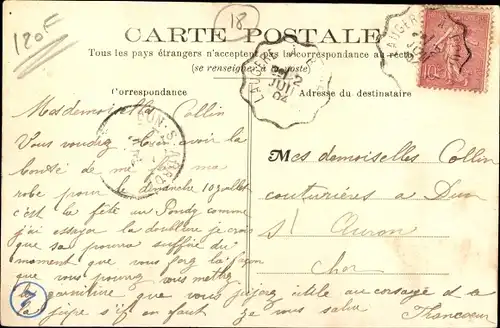 120F
18
CARTE POSTALE
Tous les pays étrangers n'acceptent pas la correspondance au recto
(se renseigner à la poste)
Correspondance
Adresse du destinataire
LAUGÈRE À
2
JUIL
04
10
Mesdemoiselles Collin
Vous voudrez bien avoir la
bonté de me ma
robe pour le dimanche 10 juillet
c'est la fête au Pondy comme
j'ai essayer la doublure je crois
que sa pourra suffire du
moment que vous la façon
que vous pourrez vous mettrez
la garniture que vous jujerez utile au corsage et a
la jupe s'il en faut je vous salue Francoeur
Mes demoiselles Collin
couturières a Dun
s/ Auron
Cher